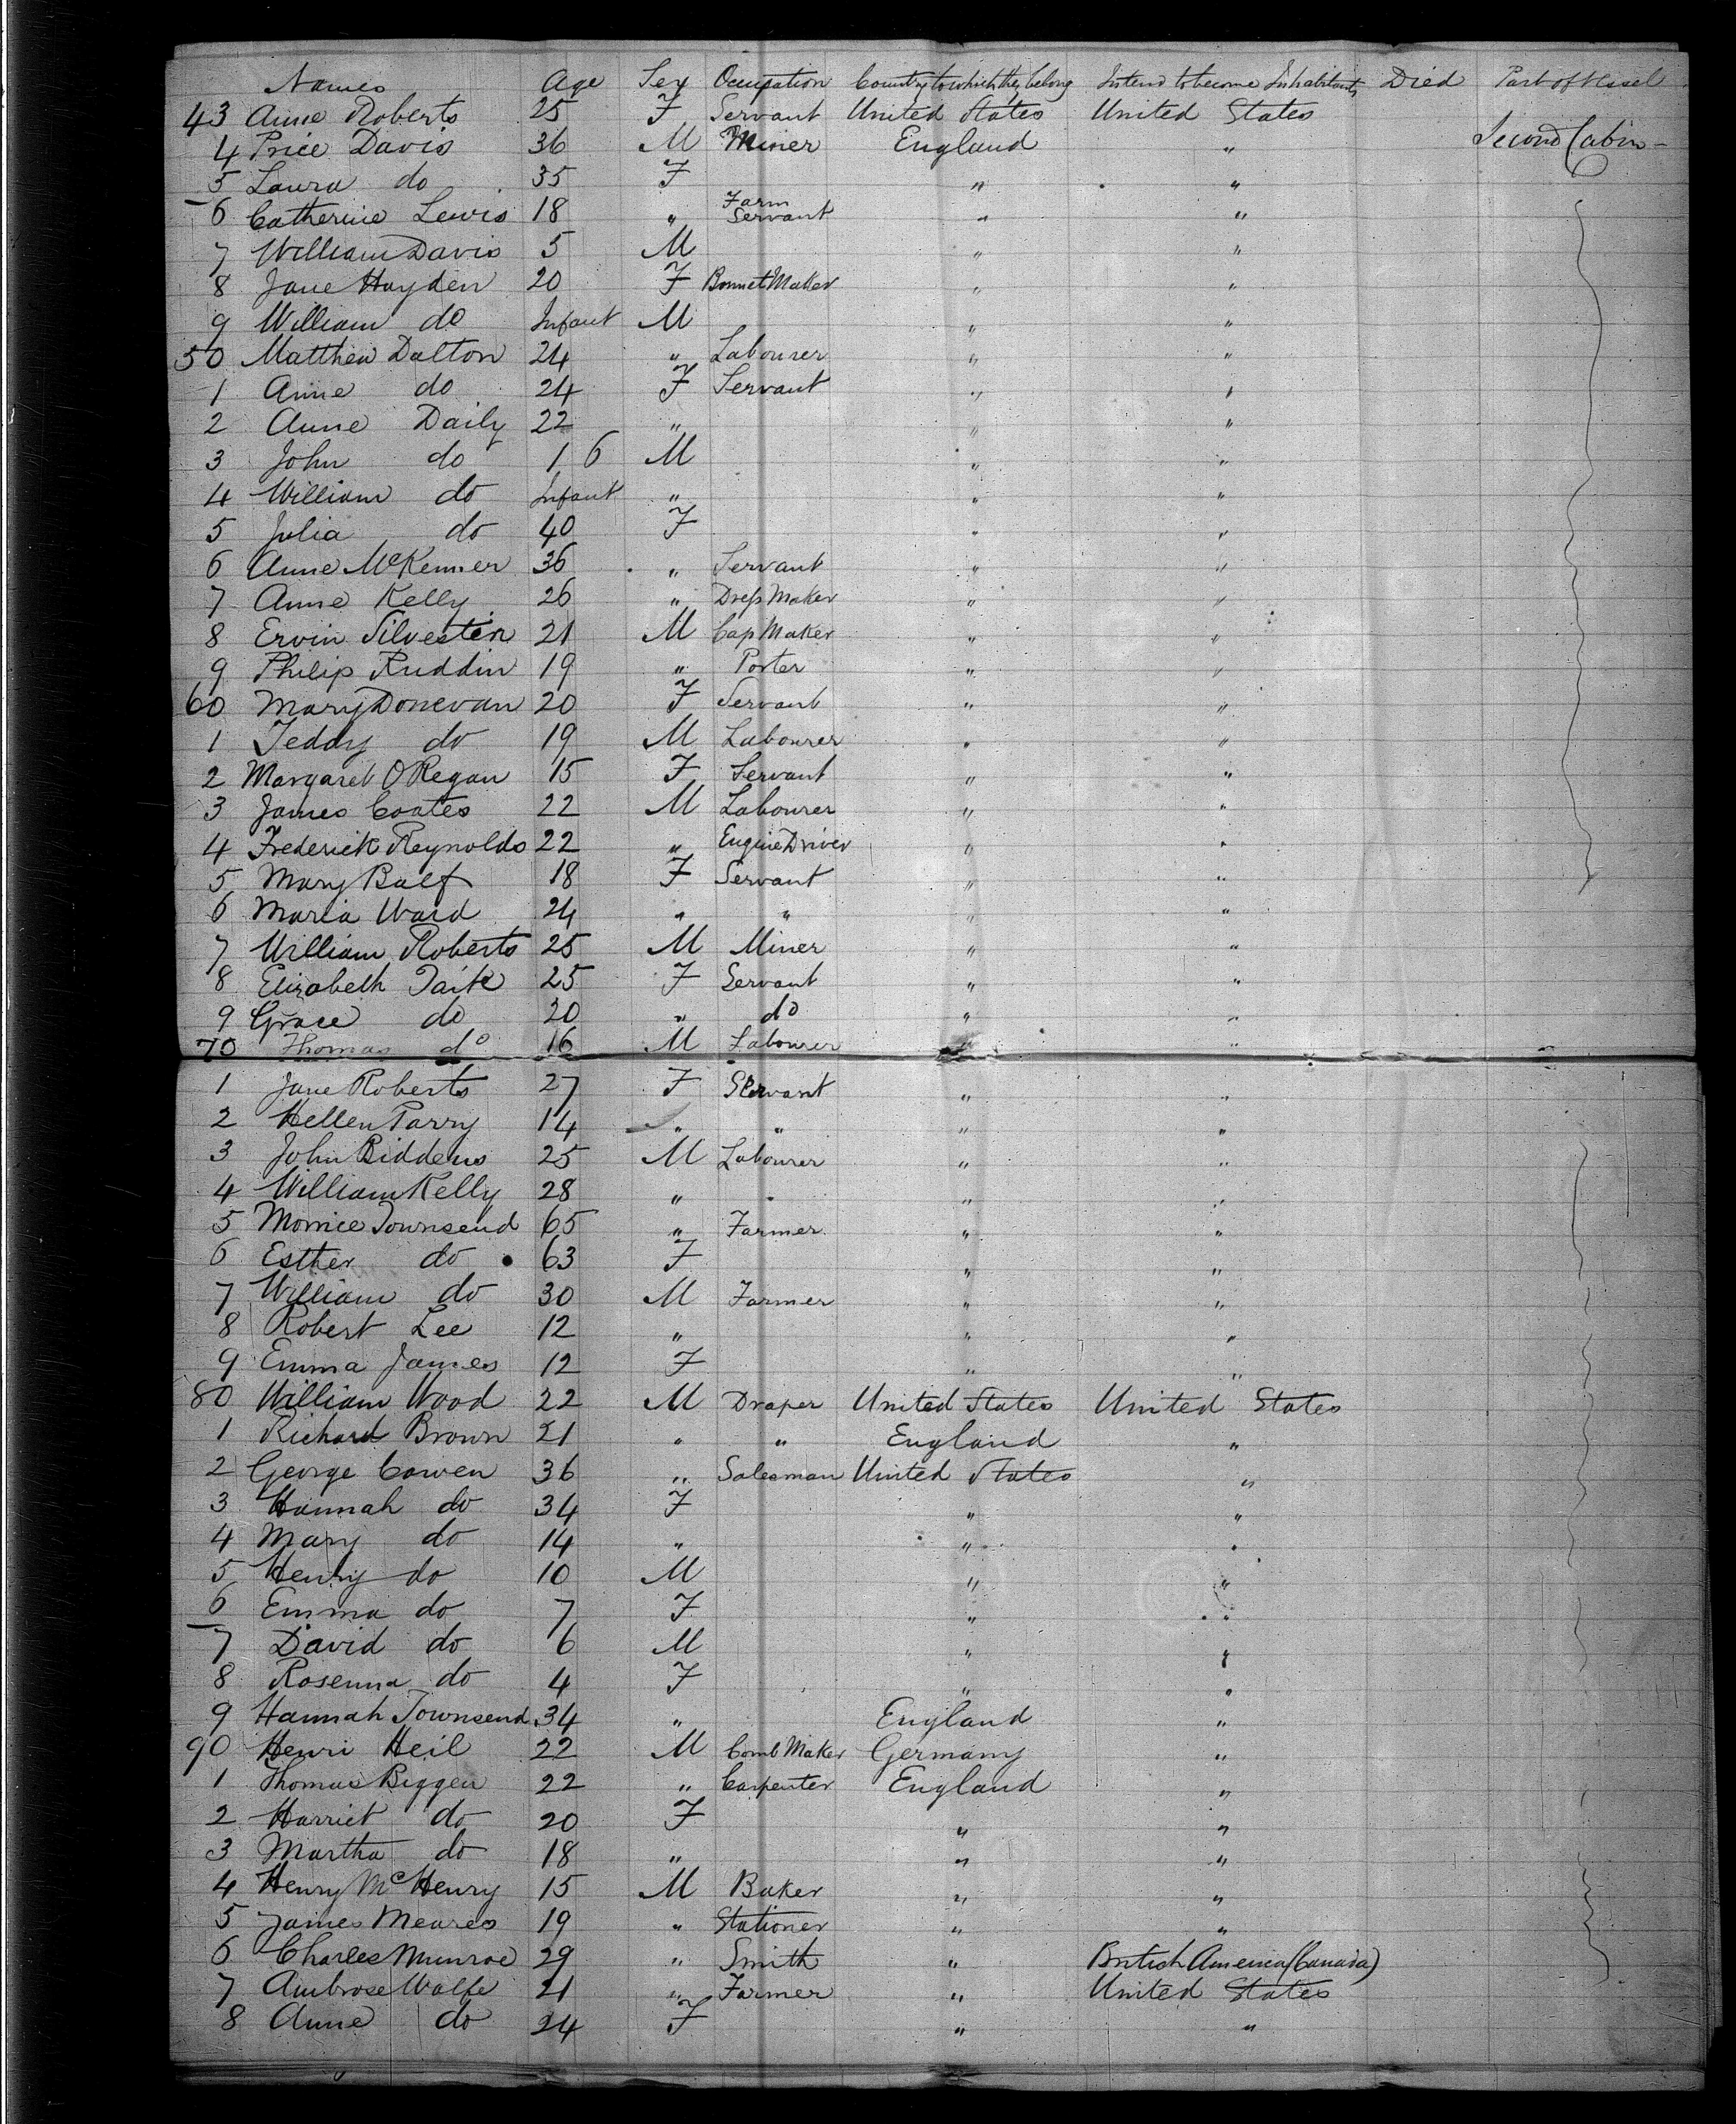 Names Age Sex Occupation Country to which they belong Intend to become Inhabitants Died Part of Vessel
43 Anne Roberts 25 F Servant United States United States
4 Price Davis 36 M Miner England " Second Cabin -
5 Laura do 35 F " "
6 Catherine Lewis 18 " Farm Servant " "
7 William Davis 5 M " "
8 Jane Hayden 20 F Bonnet Maker " "
9 William do Infant M " "
50 Matthew Dalton 24 " Labourer " "
1 Anne do 24 F Servant " "
2 Anne Daily 22 " " "
3 John do 1 6 M " "
4 William do Infant " " "
5 Julia do 40 F " "
6 Anne McKenner 36 " Servant " "
7 Anne Kelly 26 " Dress Maker " "
8 Ervin Silvestin 21 M Cap Maker " "
9 Philip Ruddin 19 " Porter " "
60 Mary Donevan 20 F Servant " "
1 Teddy do 19 M Labourer " "
2 Margaret O Regan 15 F Servant " "
3 James Coates 22 M Labourer " "
4 Frederick Reynolds 22 " Engine Driver " "
5 Mary Balf 18 F Servant " "
6 Maria Ward 24 " " " "
7 William Roberts 25 M Miner " "
8 Elizabeth Taite 25 F Servant " "
9 Grace do 20 " do " "
70 Thomas do 16 M Labourer " "
1 Jane Roberts 27 F Servant " "
2 Hellen Parry 14 " " " "
3 John Biddens 25 M Labourer " "
4 William Kelly 28 " " " "
5 Morrice Townsend 65 " Farmer " "
6 Esther do 63 F " "
7 William do 30 M Farmer " "
8 Robert Lee 12 " " "
9 Emma James 12 F " "
80 William Wood 22 M Draper United States United States
1 Richard Brown 21 " " England "
2 George Cowen 36 " Salesman United States "
3 Hannah do 34 F " "
4 Mary do 14 " " "
5 Henry do 10 M " "
6 Emma do 7 F " "
7 David do 6 M " "
8 Rosenna do 4 F " "
9 Hannah Townsend 34 " England "
90 Henri Heil 22 M Comb Maker Germany "
1 Thomas Biggen 22 " Carpenter England "
2 Harriet do 20 F " "
3 Martha do 18 " " "
4 Henry McHenry 15 M Baker " "
5 James Meares 19 " Stationer " "
6 Charles Munroe 29 " Smith " British America (Canada)
7 Ambrose Wolfe 21 " Farmer " United States
8 Anne do 24 F " "